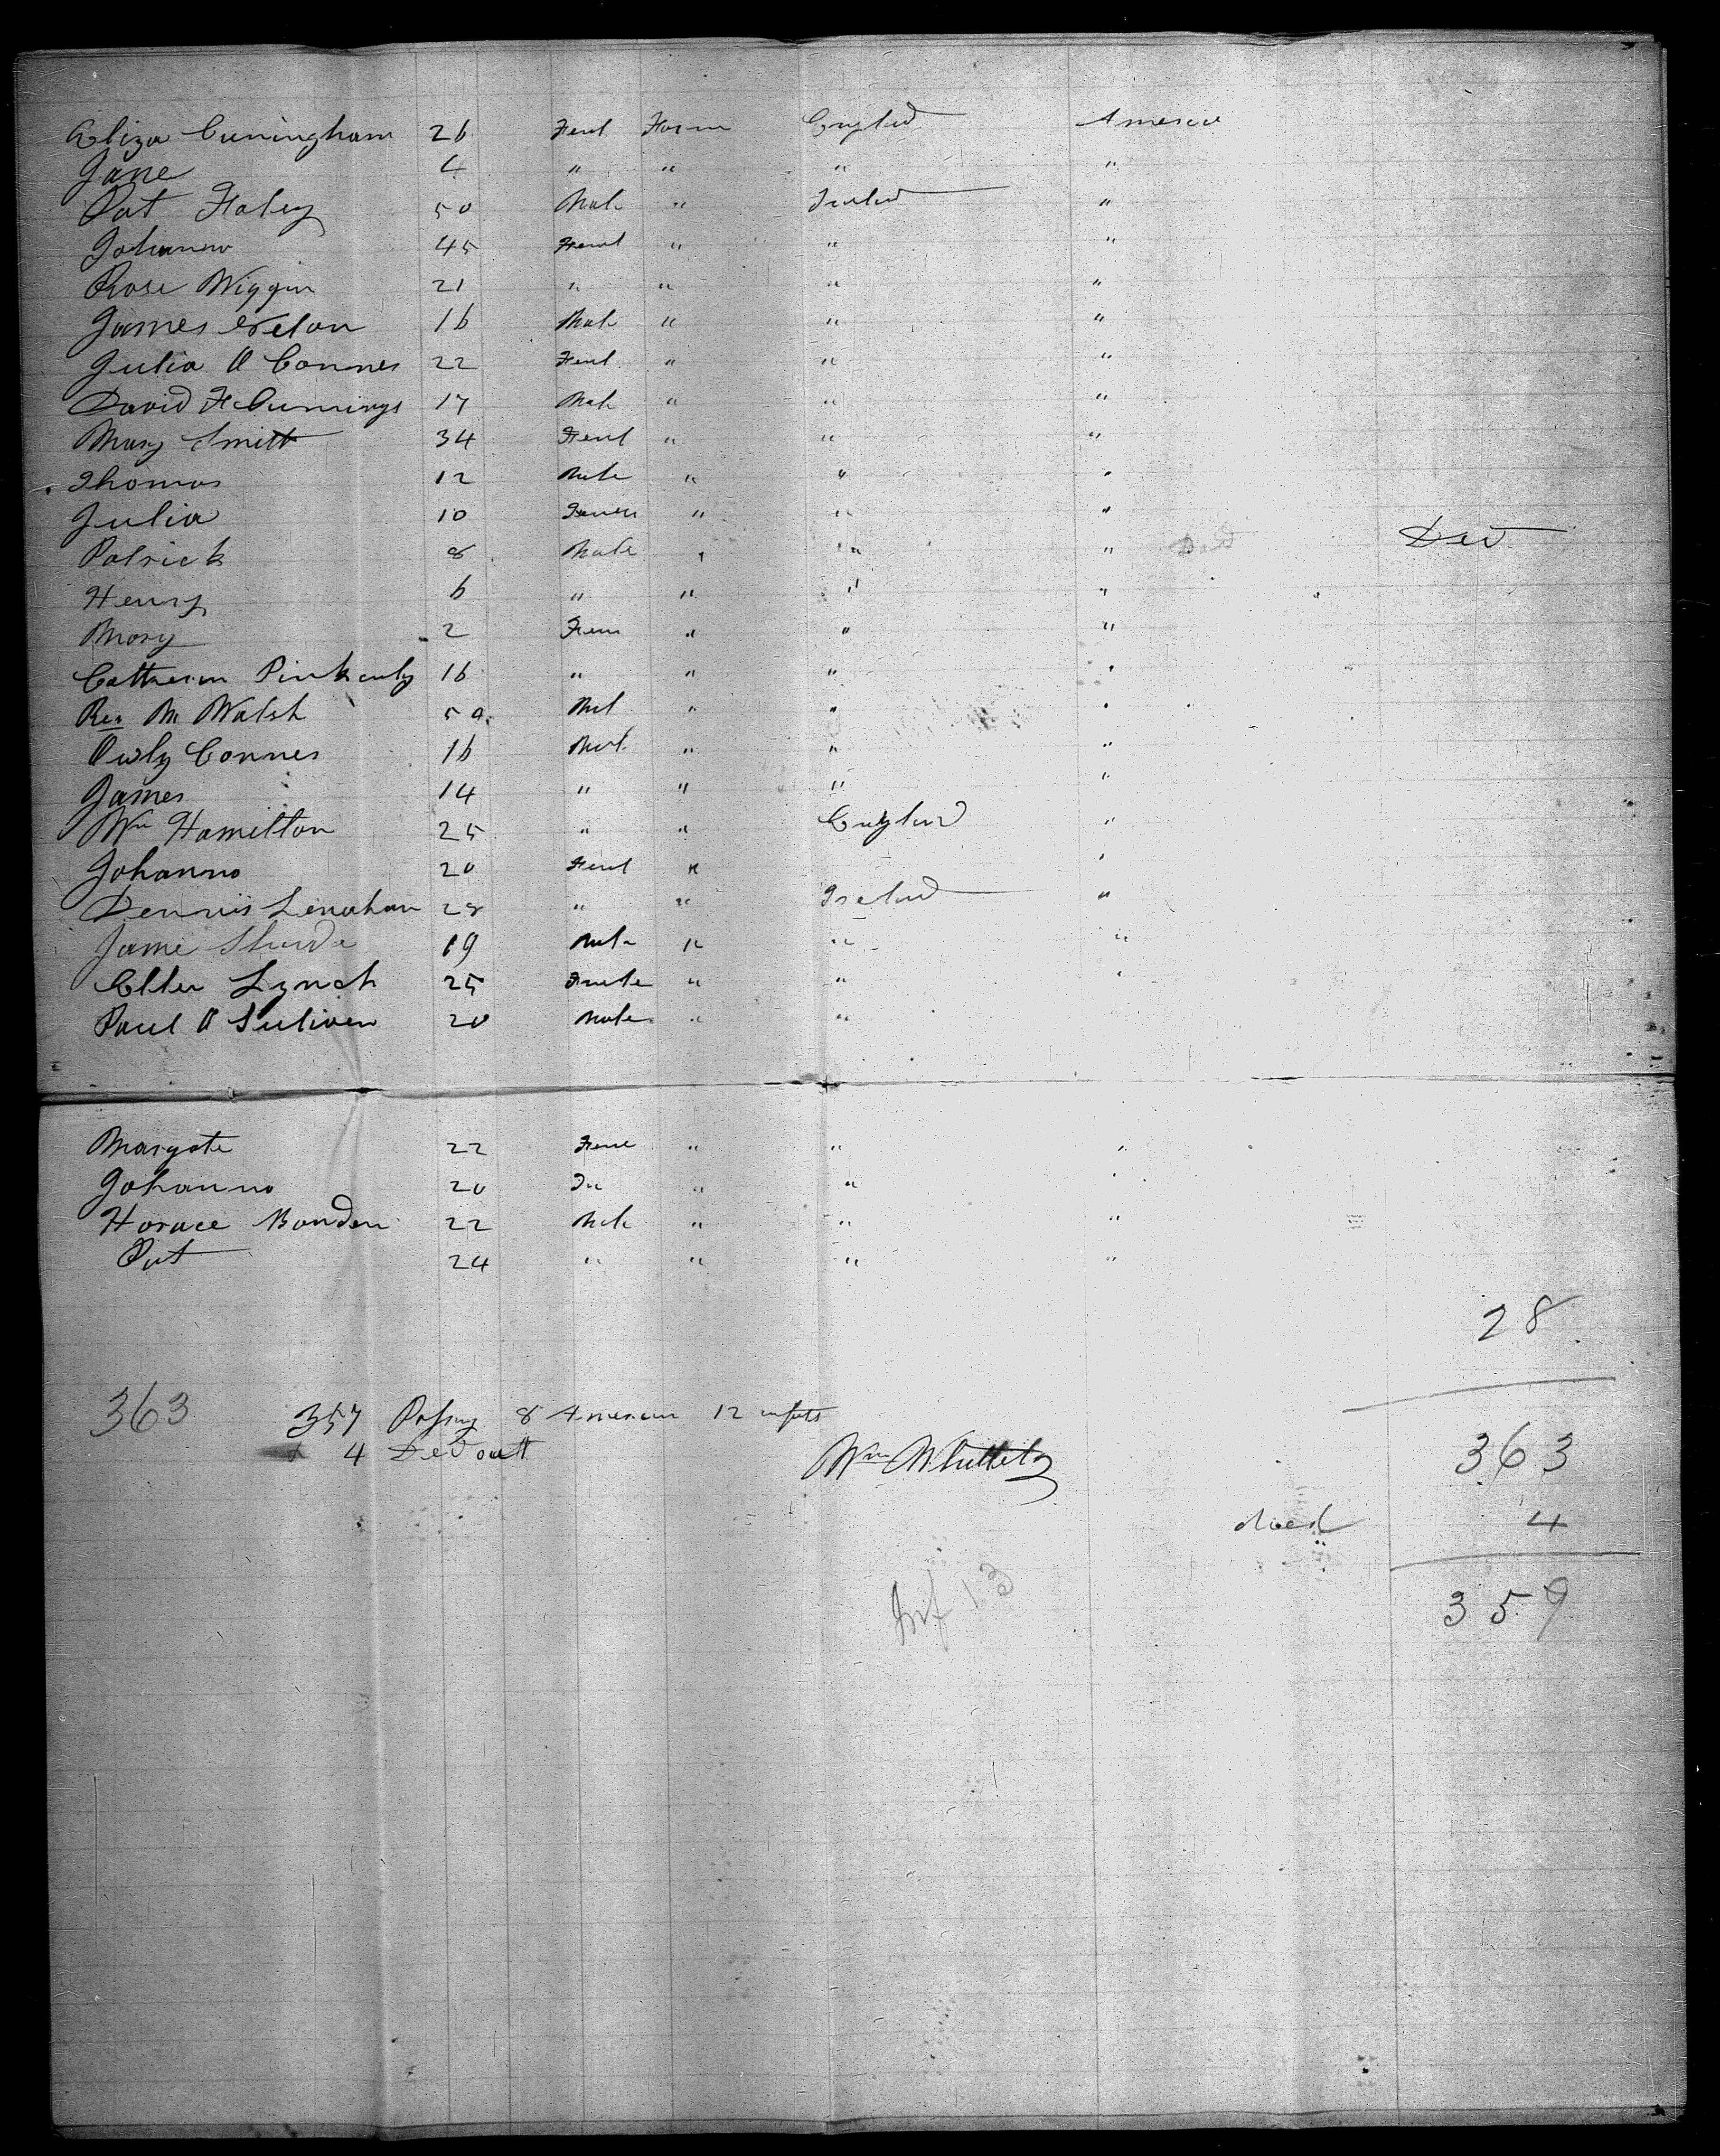 Eliza Cuningham 26 Feml Farm Englnd America
Jane 4 " " " "
Pat Foley 50 Male " Irelnd "
Johanna 45 Feml " " "
Rose Wiggin 21 " " " "
James 16 Male " " "
Julia O Conner 22 Feml " " "
David F Cummings 17 Male " " "
Mary Smitt 34 Feml " " "
Thomas 12 Male " " "
Julia 10 " " "
Patrick 8 Male " " " Ded Ded
Henry 6 " " " "
Mary 2 Fem " " "
Cattherin 16 " " " "
Rev M Walsh 50 Mal " " "
Conner 16 Male " " "
James 14 " " " "
Wm Hamilton 25 " " Englnd "
Johanna 20 Feml " "
Dennis Lenahan 28 " " Irelnd "
Jame 19 Male " " "
Ellen Lynch 25 Female " " "
Paul O Suliven 20 Male " "
Margate 22 Feme " " "
Johanna 20 " " "
Horace Bonden 22 Male " " "
Pat 24 " " " "
28
363 357 Passng 8 American 12 infats 363
4 Ded outt Wm Whittely
died 4
Inf 13 359